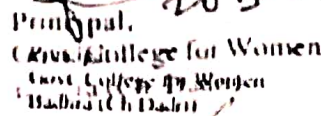 Principal,
Govt. College for Women
Govt. College for Women
Badhra (Ch. Dadri)